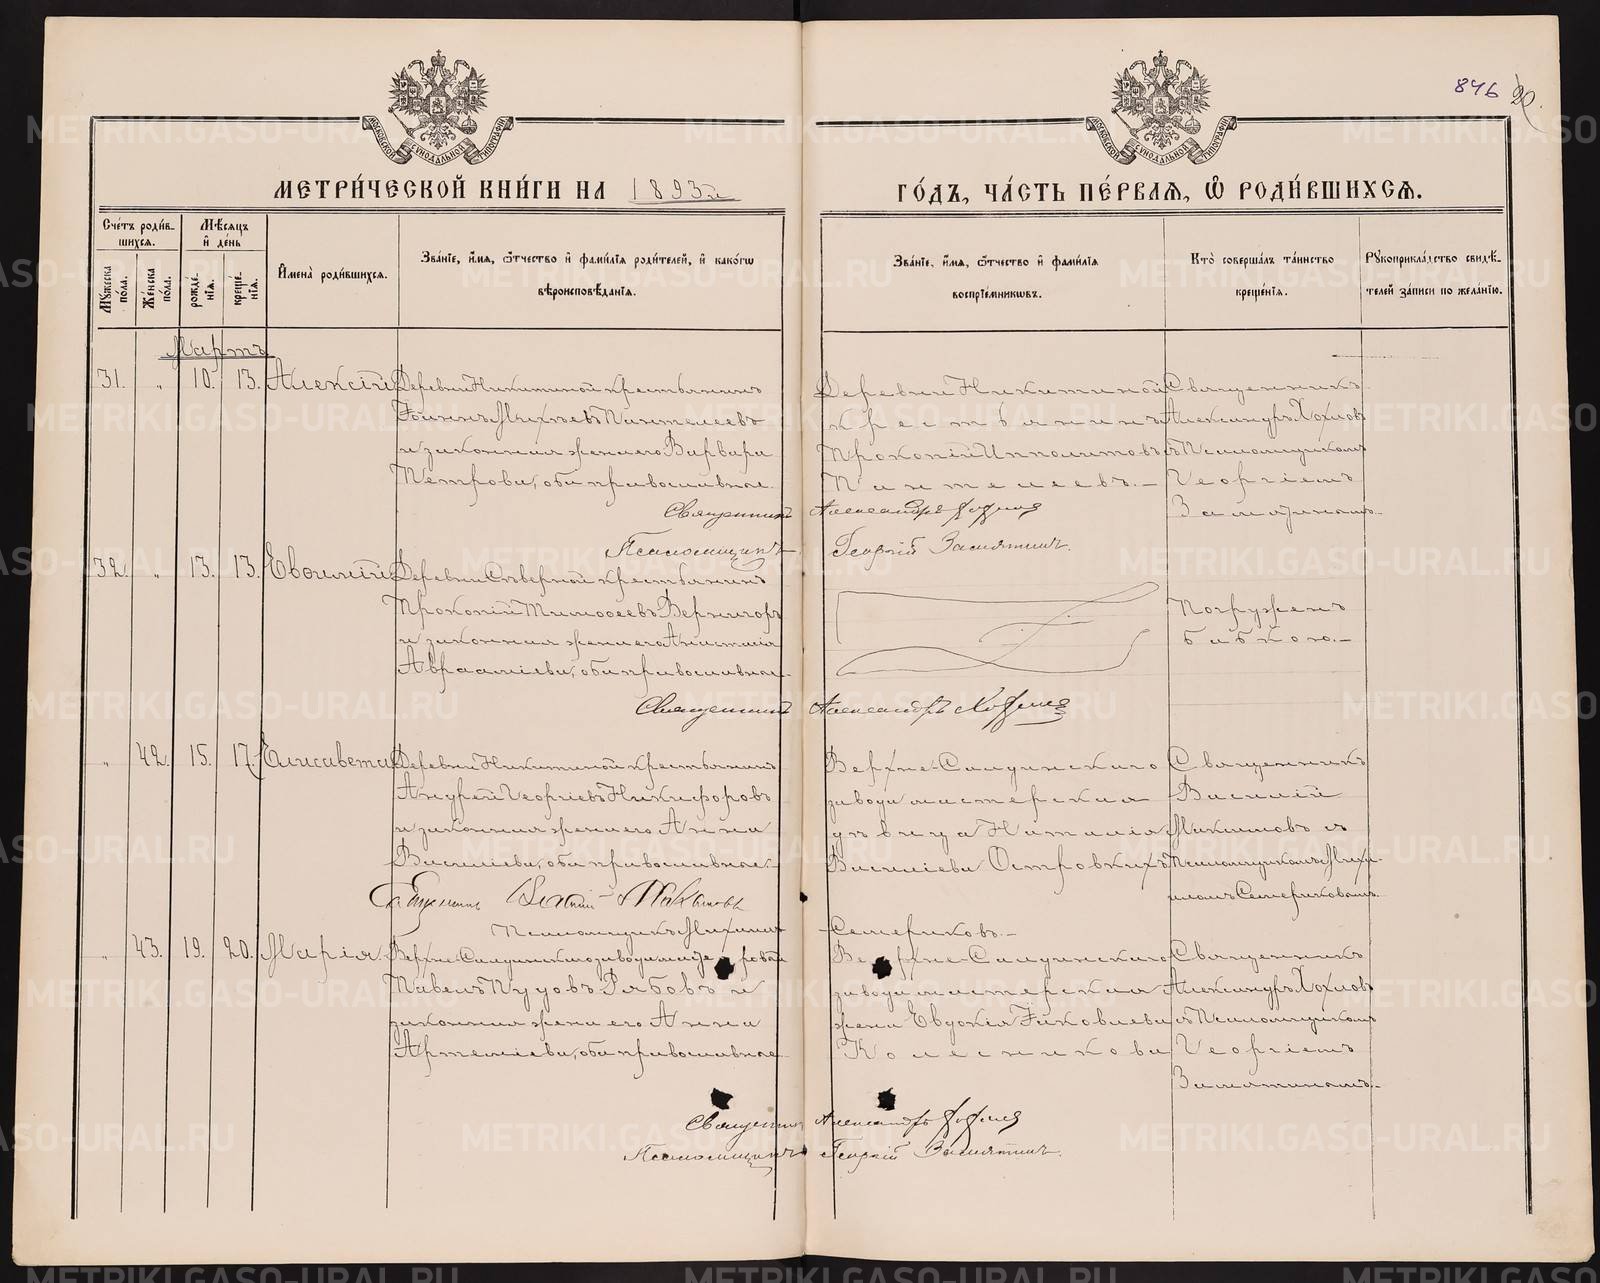 846 20.
МОСКОВСКОЙ СУНОДАЛЬНОЙ ТИПОГРАФІИ
МОСКОВСКОЙ СУНОДАЛЬНОЙ ТИПОГРАФІИ
МЕТРИ́ЧЕСКОЙ КНИ́ГИ НА 1893й ГО́ДЪ, ЧА́СТЬ ПЕ́РВАѦ, Ѡ҆ РОДИ́ВШИХСѦ.
Сче́тъ роди́вшихсѧ.
Мꙋ́жска по́ла.
Же́нска по́ла.
Мѣ́сѧцъ и҆ де́нь
рожде́нїѧ.
креще́нїѧ.
И҆мена̀ роди́вшихсѧ.
Зва́нїе, и҆́мѧ, ѻ҆́тчество и҆ фами́лїѧ роди́телей, и҆ како́гѡ
вѣроисповѣ́данїѧ.
Зва́нїе, и҆́мѧ, ѻ҆́тчество и҆ фами́лїѧ
воспрїе́мникѡвъ.
Кто̀ соверша́лъ та́инство
креще́нїѧ.
Рꙋкоприкла́дство свидѣ́телей за́писи по жела́нїю.
Мартъ
31. „ 10. 13. Алексій
Деревни Никитиной крестьянинъ
Іоаннъ Михѣевъ Пантелеевъ
и законная жена его Варвара
Петрова, оба православные.
Деревни Никитиной
крестьянинъ
Прокопій Ипполитовъ
Пантелеевъ.-
Священникъ
Александръ Хохловъ
съ Псаломщикомъ
Георгіемъ
Замятинымъ.
Священникъ Александръ Хохловъ
Псаломщикъ Георгій Замятинъ.
32. „ 13. 13. Евѳимій
Деревни Сѣверной крестьянинъ
Прокопій Тимоѳеевъ Вернигоръ
и законная жена его Анастасія
Авраамиева, оба православные.
Погруженъ
бабкою.-
Священникъ Александръ Хохловъ
„ 42. 15. 17. Елисавета
Деревни Никитиной крестьянинъ
Андрей Георгіевъ Никифоровъ
и законная жена его Анна
Василіева, оба православные.
Верхне-Салдинскаго
завода мастерская
дѣвица Наталія
Василіева Островкихъ
Священникъ
Василій
Максимовъ съ
Псаломщикомъ Михаиломъ Семериковымъ.
Священникъ Василій Максимовъ
Псаломщикъ Михаилъ Семериковъ.-
„ 43. 19. 20. Марія
Верхне-Салдинскаго завода мастеровой
Павелъ Пудовъ Рябовъ и
законная жена его Анна
Артеміева, оба православные
Верхне-Салдинскаго
завода мастерская
жена Евдокія Іаковлева
Колесникова
Священникъ
Александръ Хохловъ
съ Псаломщикомъ
Георгіемъ
Замятинымъ.
Священникъ Александръ Хохловъ
Псаломщикъ Георгій Замятинъ.
METRIKI.GASO-URAL.RU